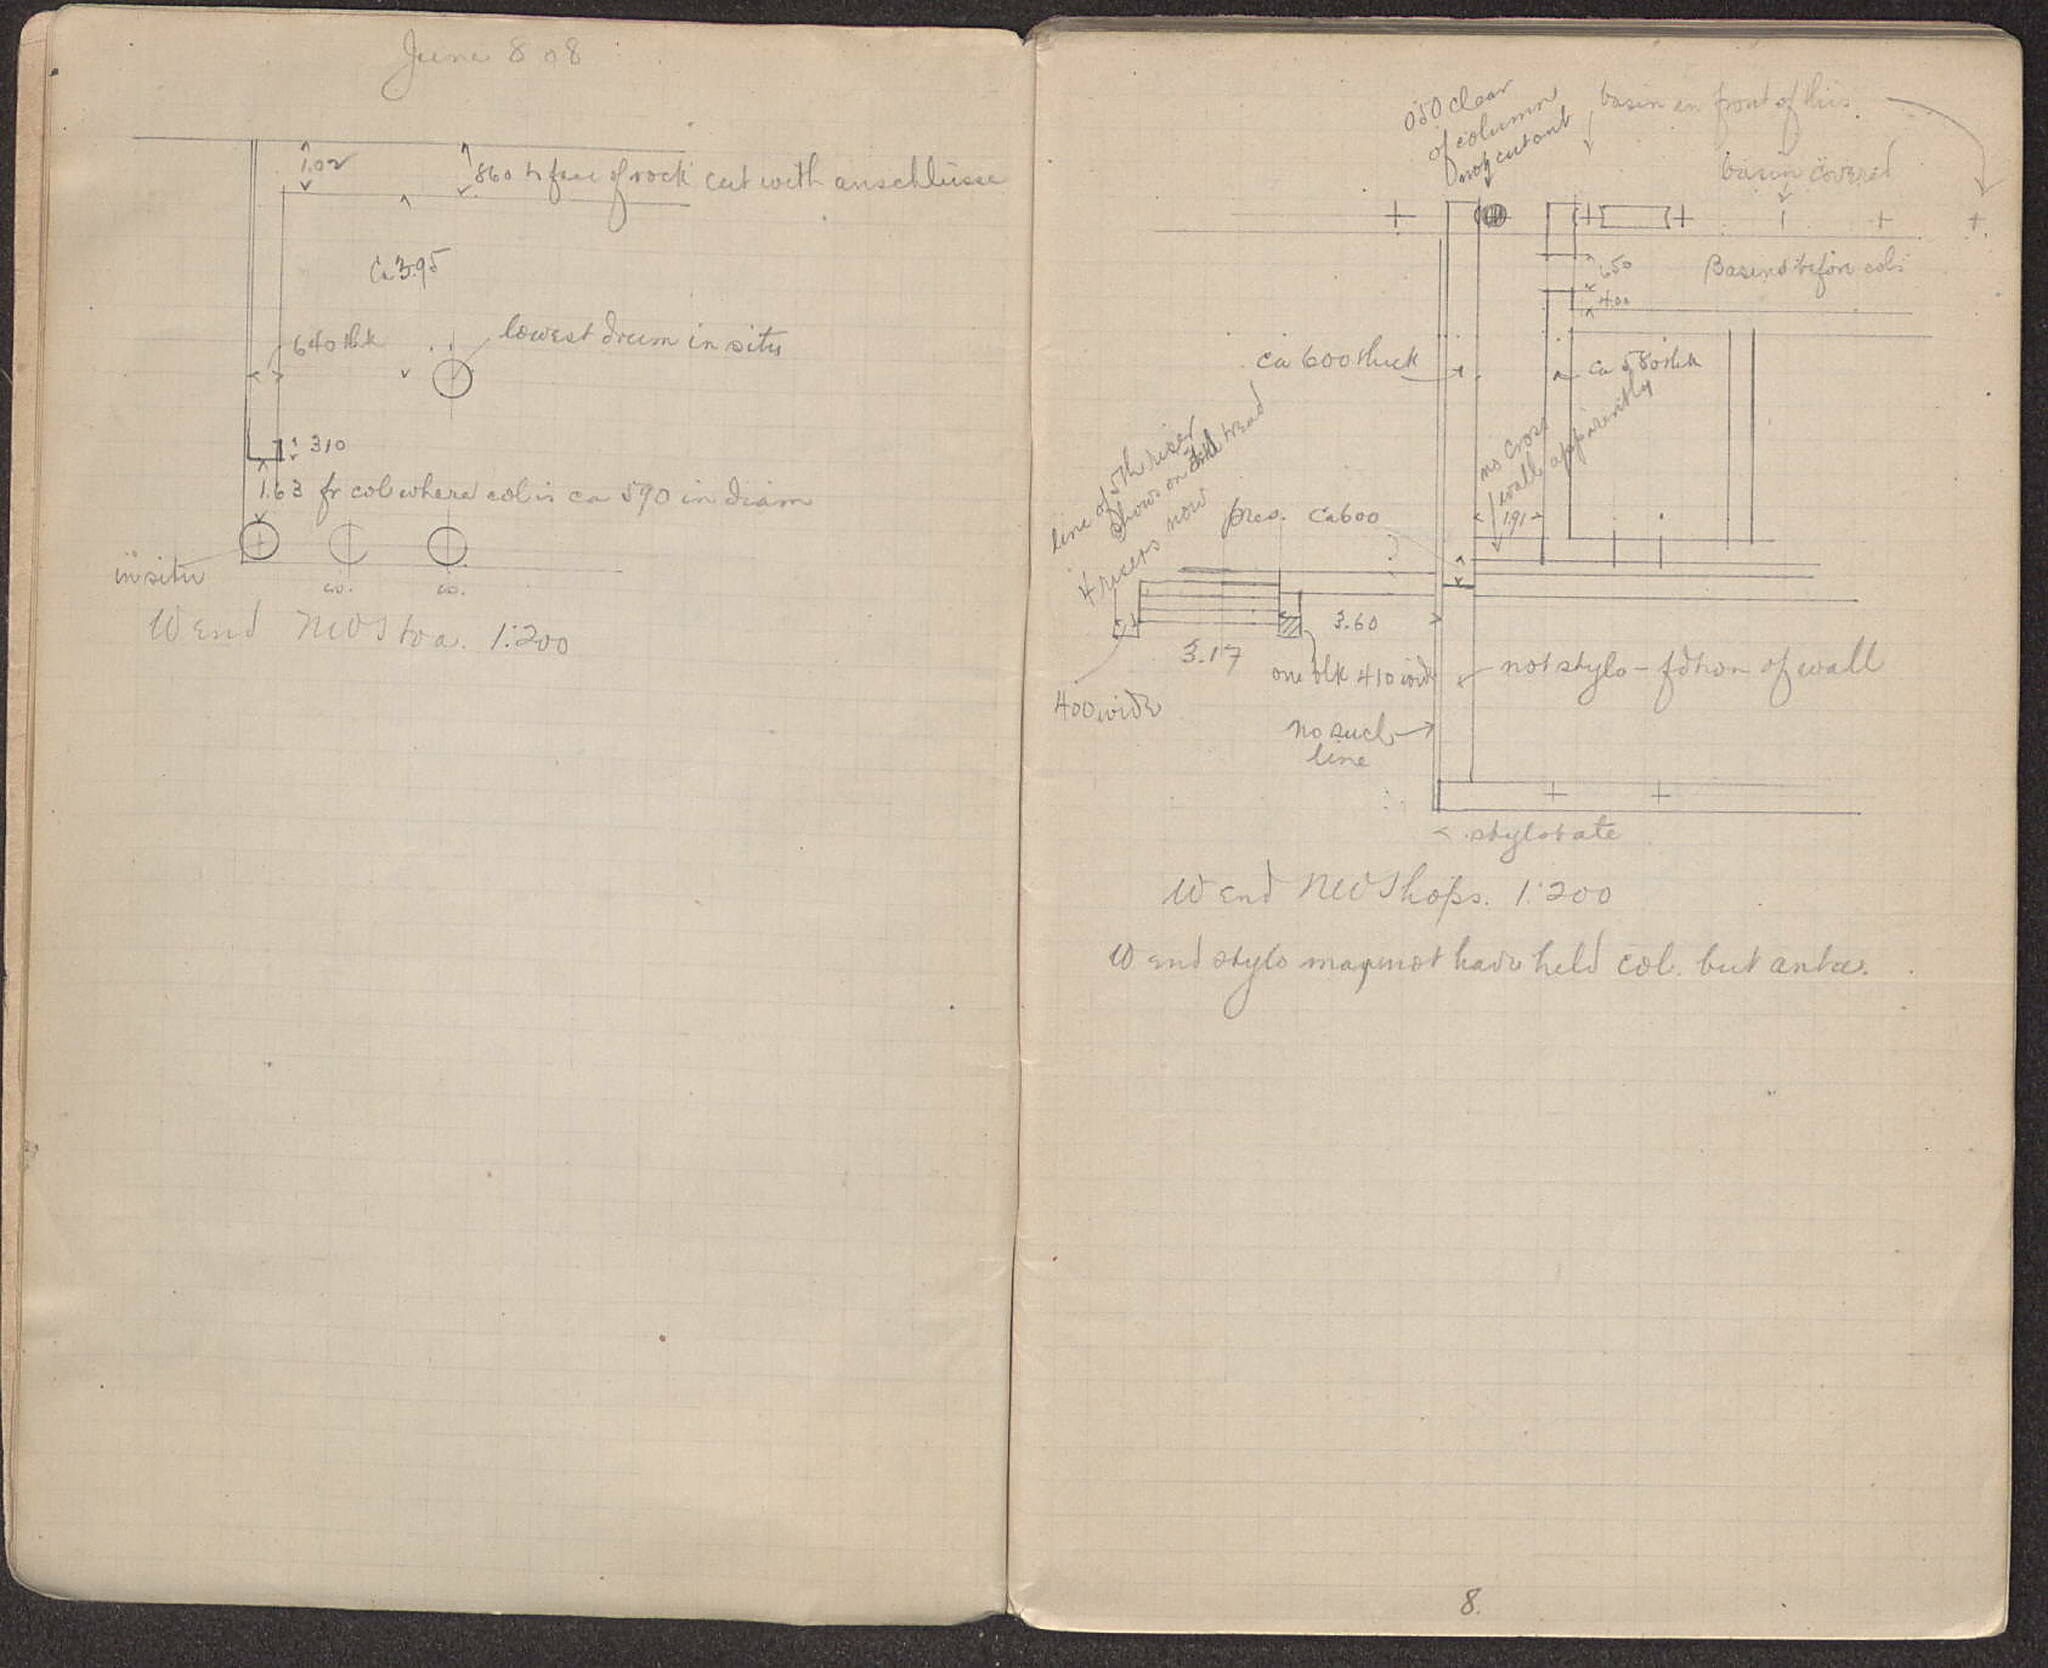 June 8 08
1.02
860 to face of rock cut with anschlüsse
Ca 3.95
640 thk
lowest drum in situ
310
1.63 fr col where col is ca 590 in diam
in situ
W end NW Stoa. 1:200
050 clear
of column
not cut out
basin in front of this
basin covered
650
Basins before col.
400
ca 600 thick
ca 580 thk
line of 5th riser
shows on tread
4 risers now
no cross
wall apparently
pres. Ca 600
1.91
3.60
3.17
one blk 410 wide
not stylo - fdtion of wall
400 wide
no such
line
stylobate
W end NW Shops. 1:200
W end stylo may not have held col. but antae.
8.